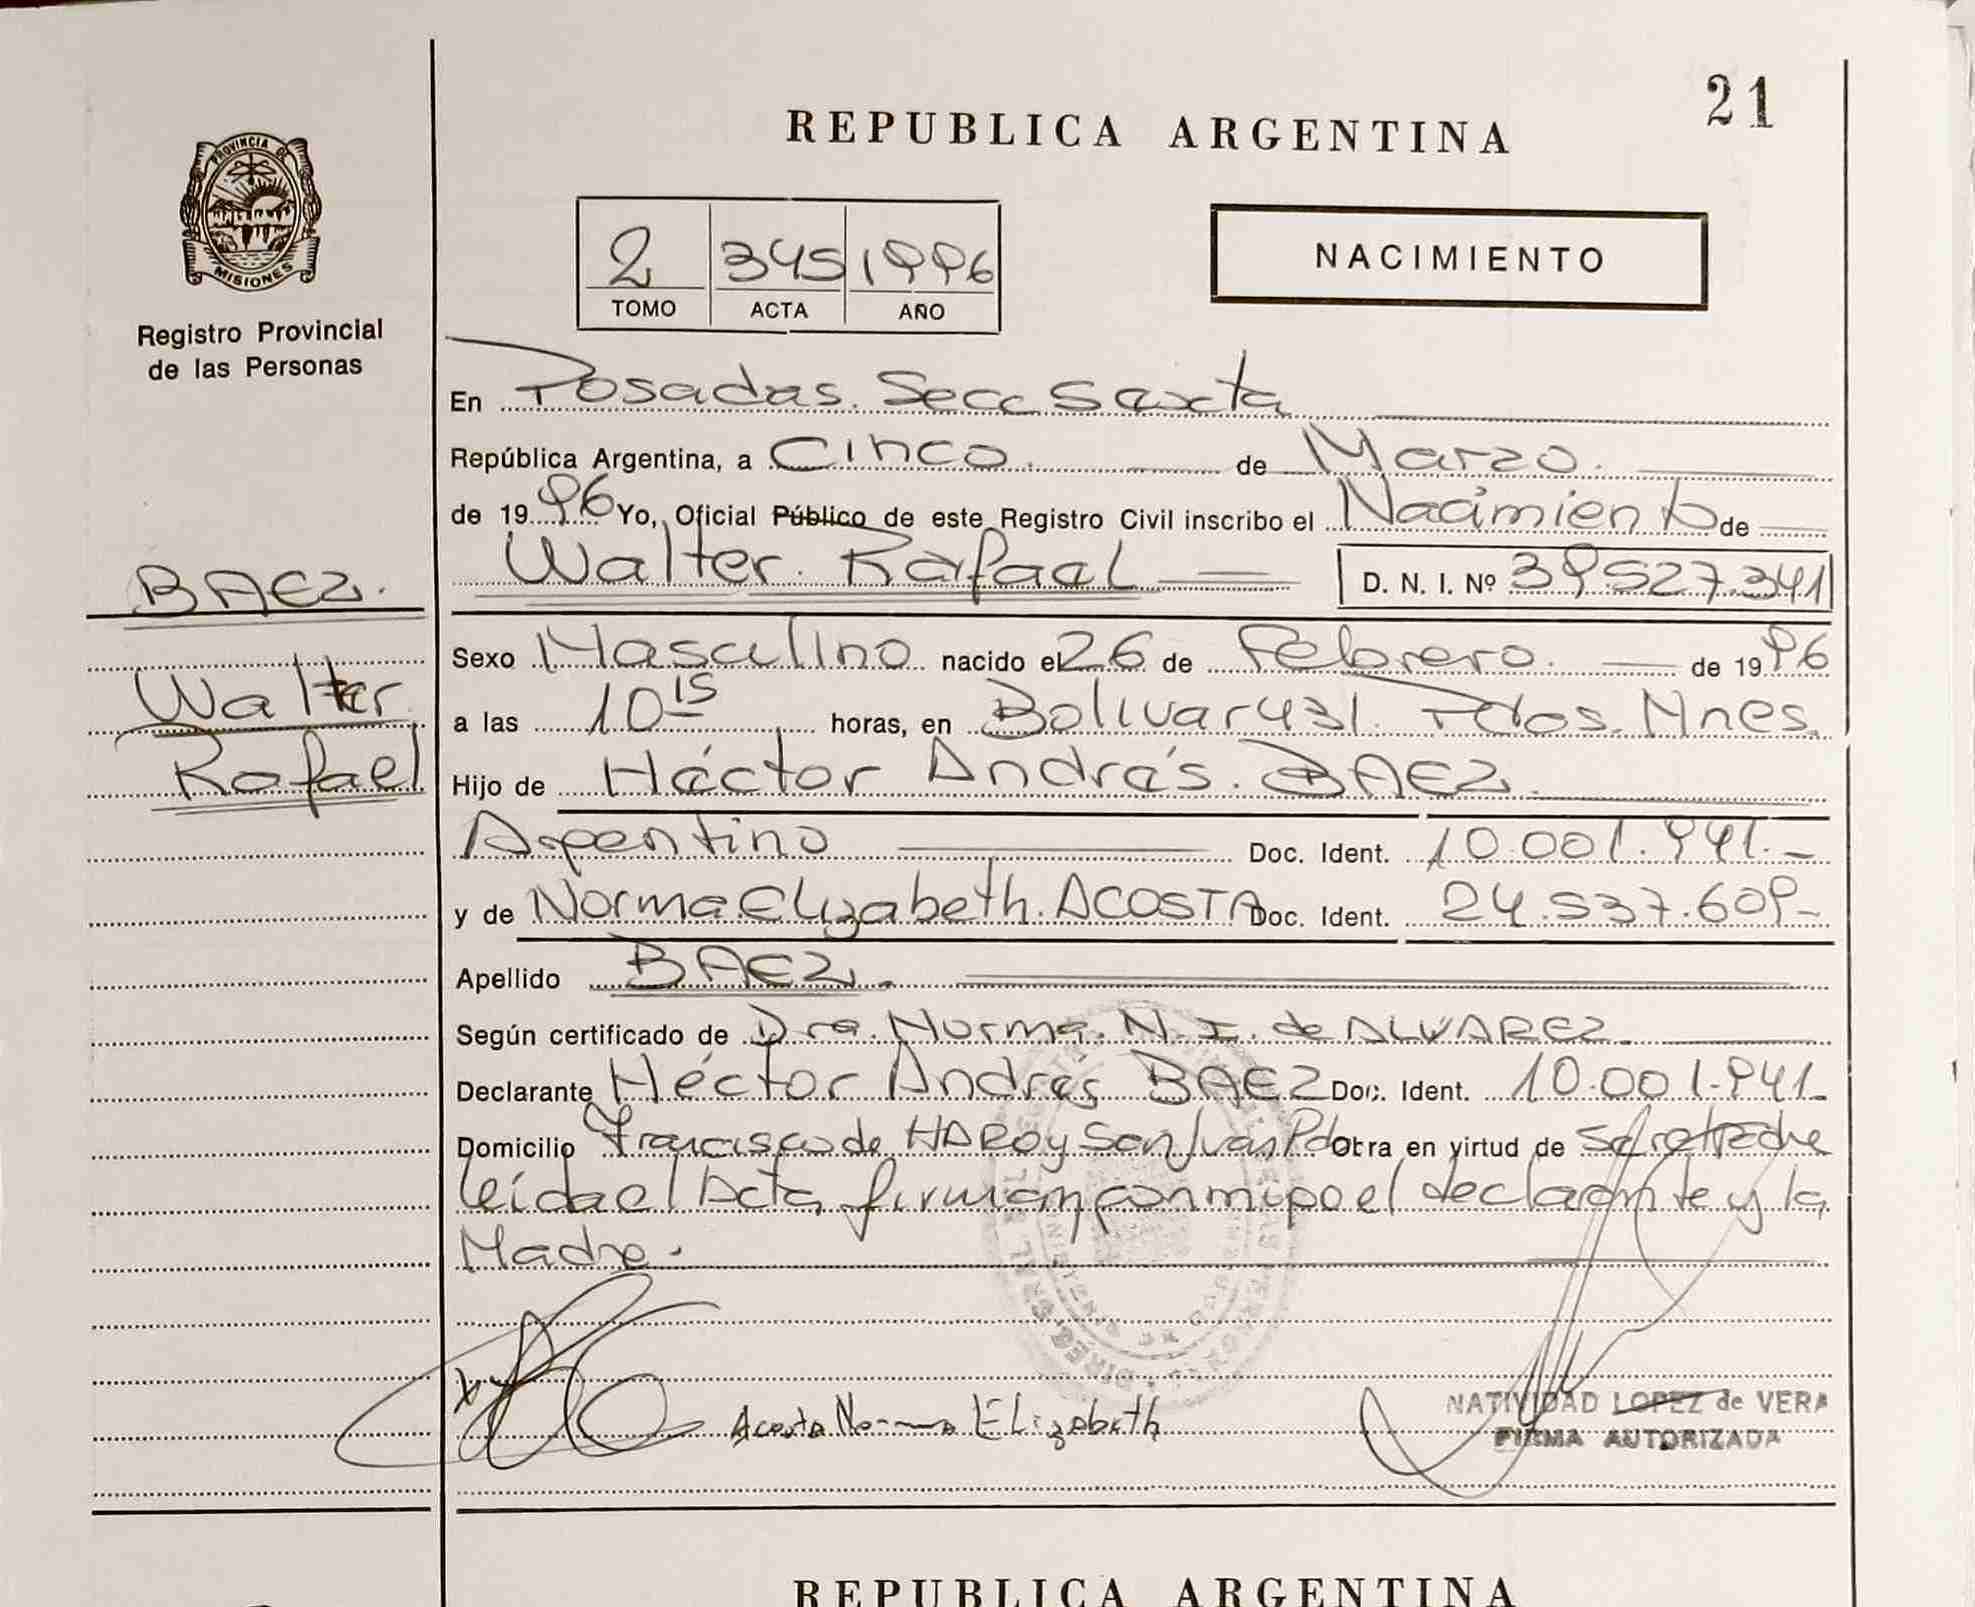 21
REPUBLICA ARGENTINA
PROVINCIA DE
MISIONES
Registro Provincial
de las Personas
2 345 1996
TOMO ACTA AÑO
NACIMIENTO
En Posadas. Secc Sexta
República Argentina, a Cinco. de Marzo.
de 1996 Yo, Oficial Público de este Registro Civil inscribo el Nacimiento de
Walter Rafael D. N. I. Nº 39.527.341
BAEZ.
Walter
Rafael
Sexo Masculino nacido el 26 de Febrero. de 1996
a las 10 15 horas, en Bolivar 431. Pdas. Mnes.
Hijo de Héctor Andrés. BAEZ.
Argentino Doc. Ident. 10.001.941.-
y de Norma Elizabeth. ACOSTA Doc. Ident. 24.537.609-
Apellido BAEZ.
Según certificado de Dra. Norma. N. I. de ALVAREZ.
Declarante Héctor Andrés BAEZ Doc. Ident. 10.001.941-
Domicilio Francisco de HARO y San Juan Pdas Obra en virtud de
leída el Acta firman conmigo el declarante y la
Madre.
Acosta Norma Elizabeth
NATIVIDAD LOPEZ de VERA
FIRMA AUTORIZADA
REPUBLICA ARGENTINA